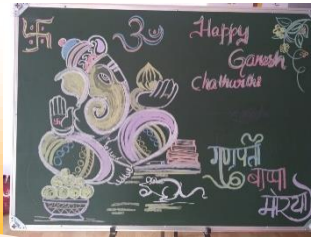 ॐ
Happy
Ganesh
Chathurthi
गणपती
बाप्पा
मोरया